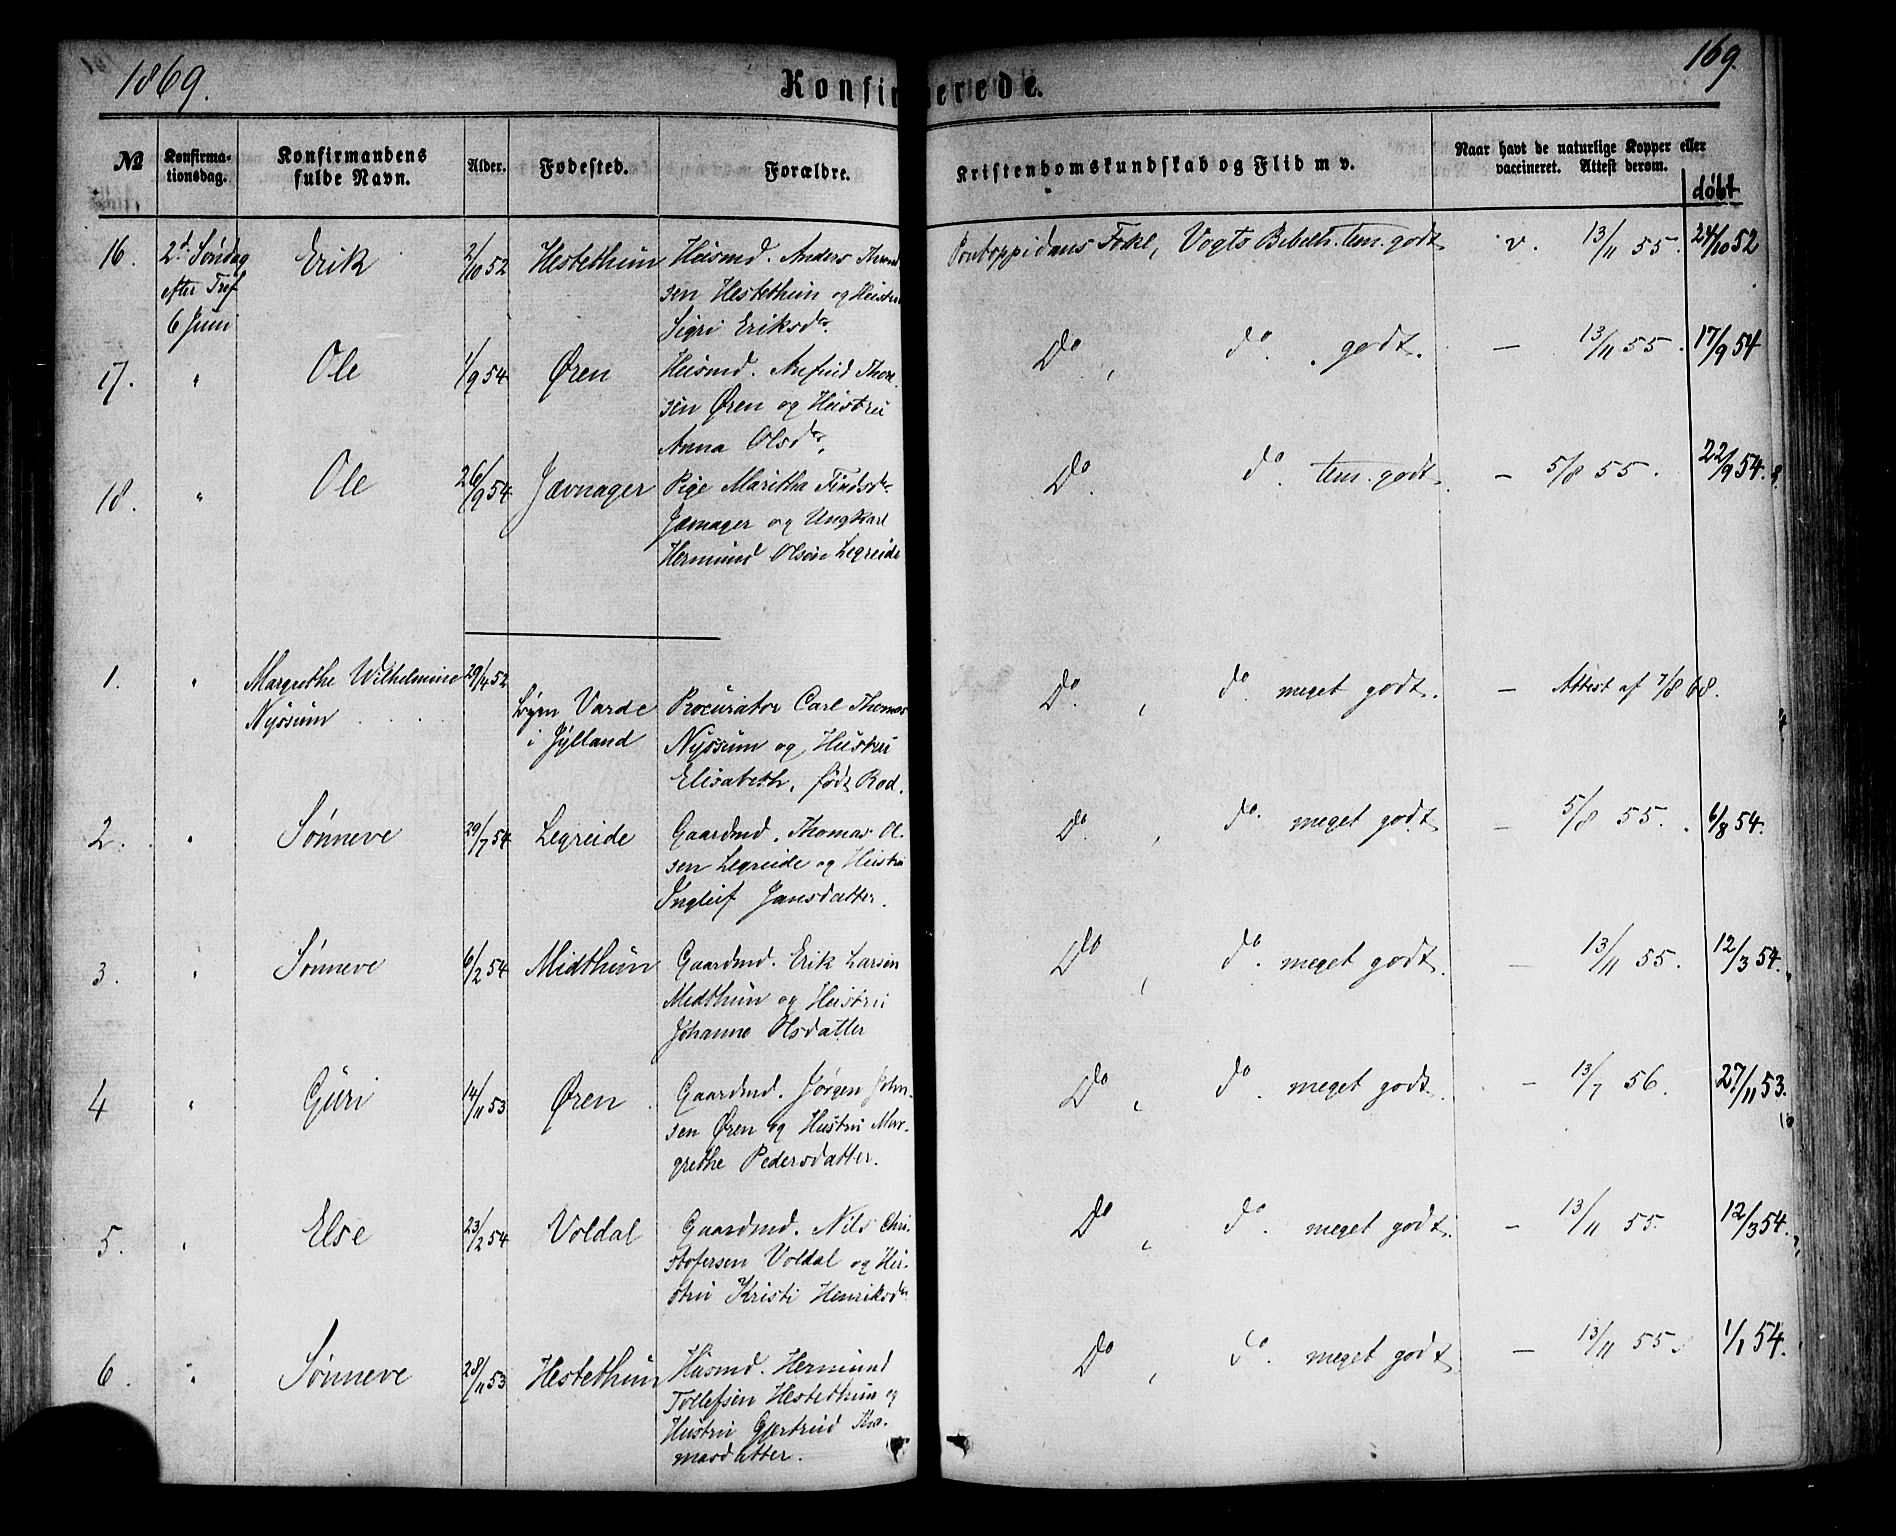 1869.
Konfirmerede.
169.
№
Konfirma-
tionsdag.
Konfirmandens
fulde Navn.
Alder.
Fødested.
Forældre.
Kristendomskundskab og Flid m v.
Naar havt de naturlige Kopper eller
vaccineret. Attest derom.
døbt
16. 2d Søndag Erik 2/10 52 Hestethun Huusmd. Anders Pontoppidans Fokl, Vogts Bibelh. tem. godt v. 13/11 55. 24/10 52
efter Tref sen Hestethun og Hustru
6 Juni Sigri Eriksdr.
17. " Ole 1/9 54 Øren Huusmd. Anfind Thor- Do, do. godt. — 13/11 55. 17/9 54
sen Øren og Hustru
Anna Olsdr.
18. " Ole 26/9 54 Jævnager Pige Maritha Findsdr. Do. do. tem. godt. — 5/8 55. 22/9 54.
Jævnager og Ungkarl
Hermund Olsen Legreide
1. " Margrethe Wilhelmine 29/4 52
Nyssum Varde Procurator Carl Thomas Do. , do. meget godt. — Attest af 7/8 68.
i Jylland Nyssum og Hustru
Elisabeth, født Rod.
2. " Sønneve 29/7 54 Legreide Gaardmd. Thomas Ol- Do. , do. meget godt — 5/8 55. 6/8 54.
sen Legreide og Hustru
Ingleif Jansdatter.
3. " Sønneve 6/2 54 Midthun Gaardmd. Erik Larsen Do , do. meget godt. — 13/11 55. 12/3 54.
Midthun og Hustru
Johanne Olsdatter
4 " Guri 14/11 53 Øren Gaardmd. Jørgen John- Do , do. meget godt. — 13/7 56. 27/11 53.
sen Øren og Hustru Mar-
grethe Pedersdatter.
5. " Else 23/2 54 Voldal Gaardmd. Nils Chri- Do , do. meget godt. — 13/11 55. 12/3 54.
stofersen Voldal og Hu-
stru Kristi Henriksdr.
6. " Sønneve 28/11 53 Hestethun Husmd. Hermund Do , do. meget godt — 13/11 55. 1/1 54.
Tollefsen Hestethun og
Hustru Gjertrud Tho-
masdatter.